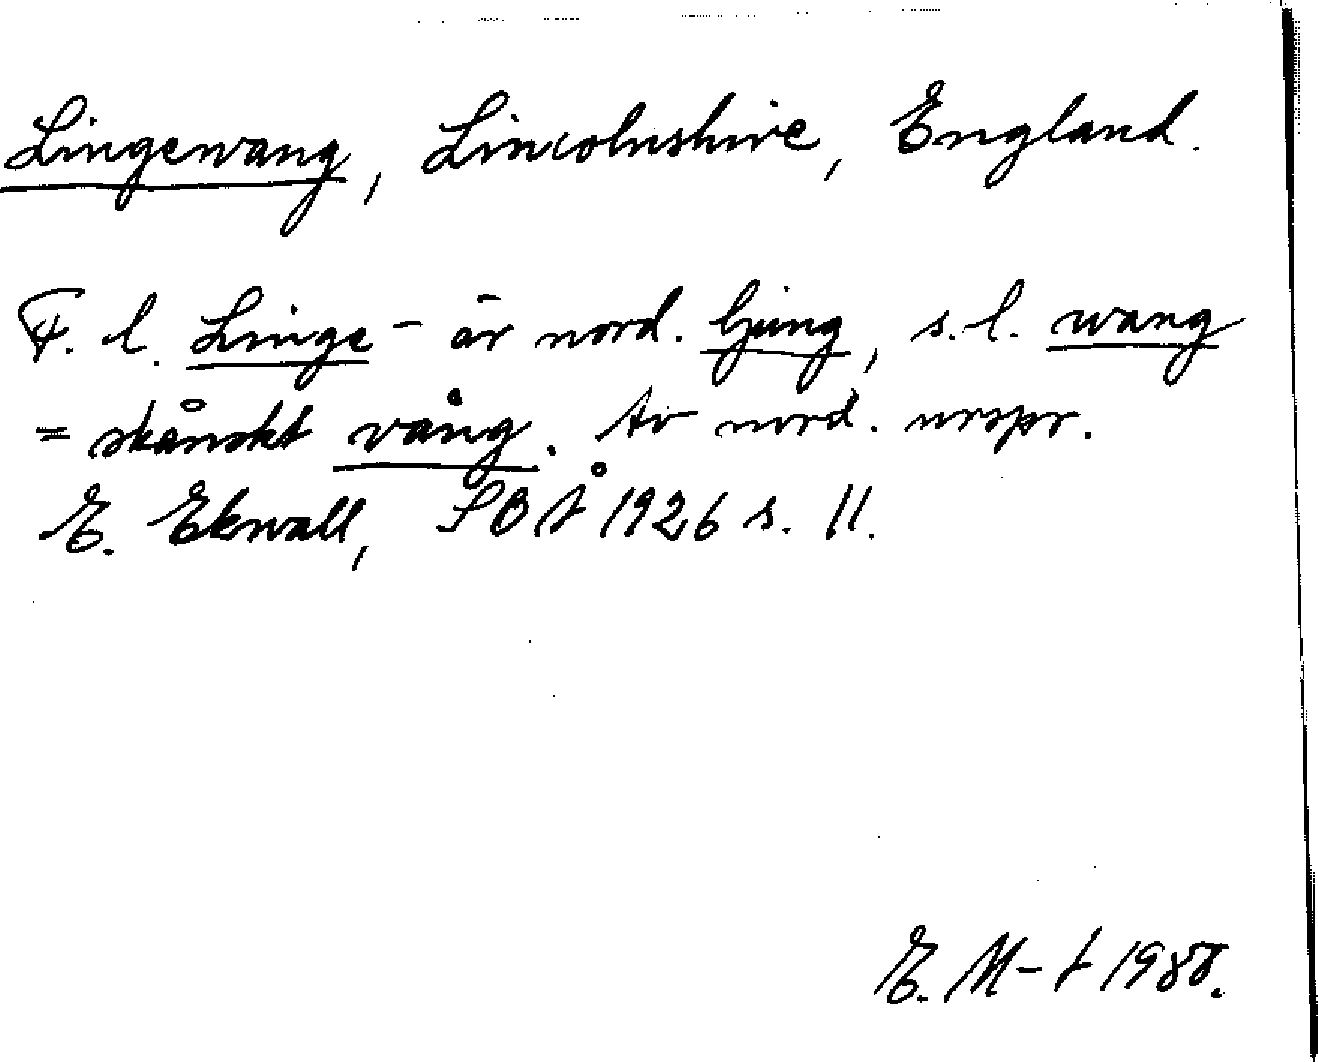 Lingewang, Lincolnshire, England.
F. l. Linge- är nord. ljung, s. l. wang
= skånskt vång. Av nord. urspr.
E. Ekwall, SOÅ 1926 s. 11.
E. M-t 1988.